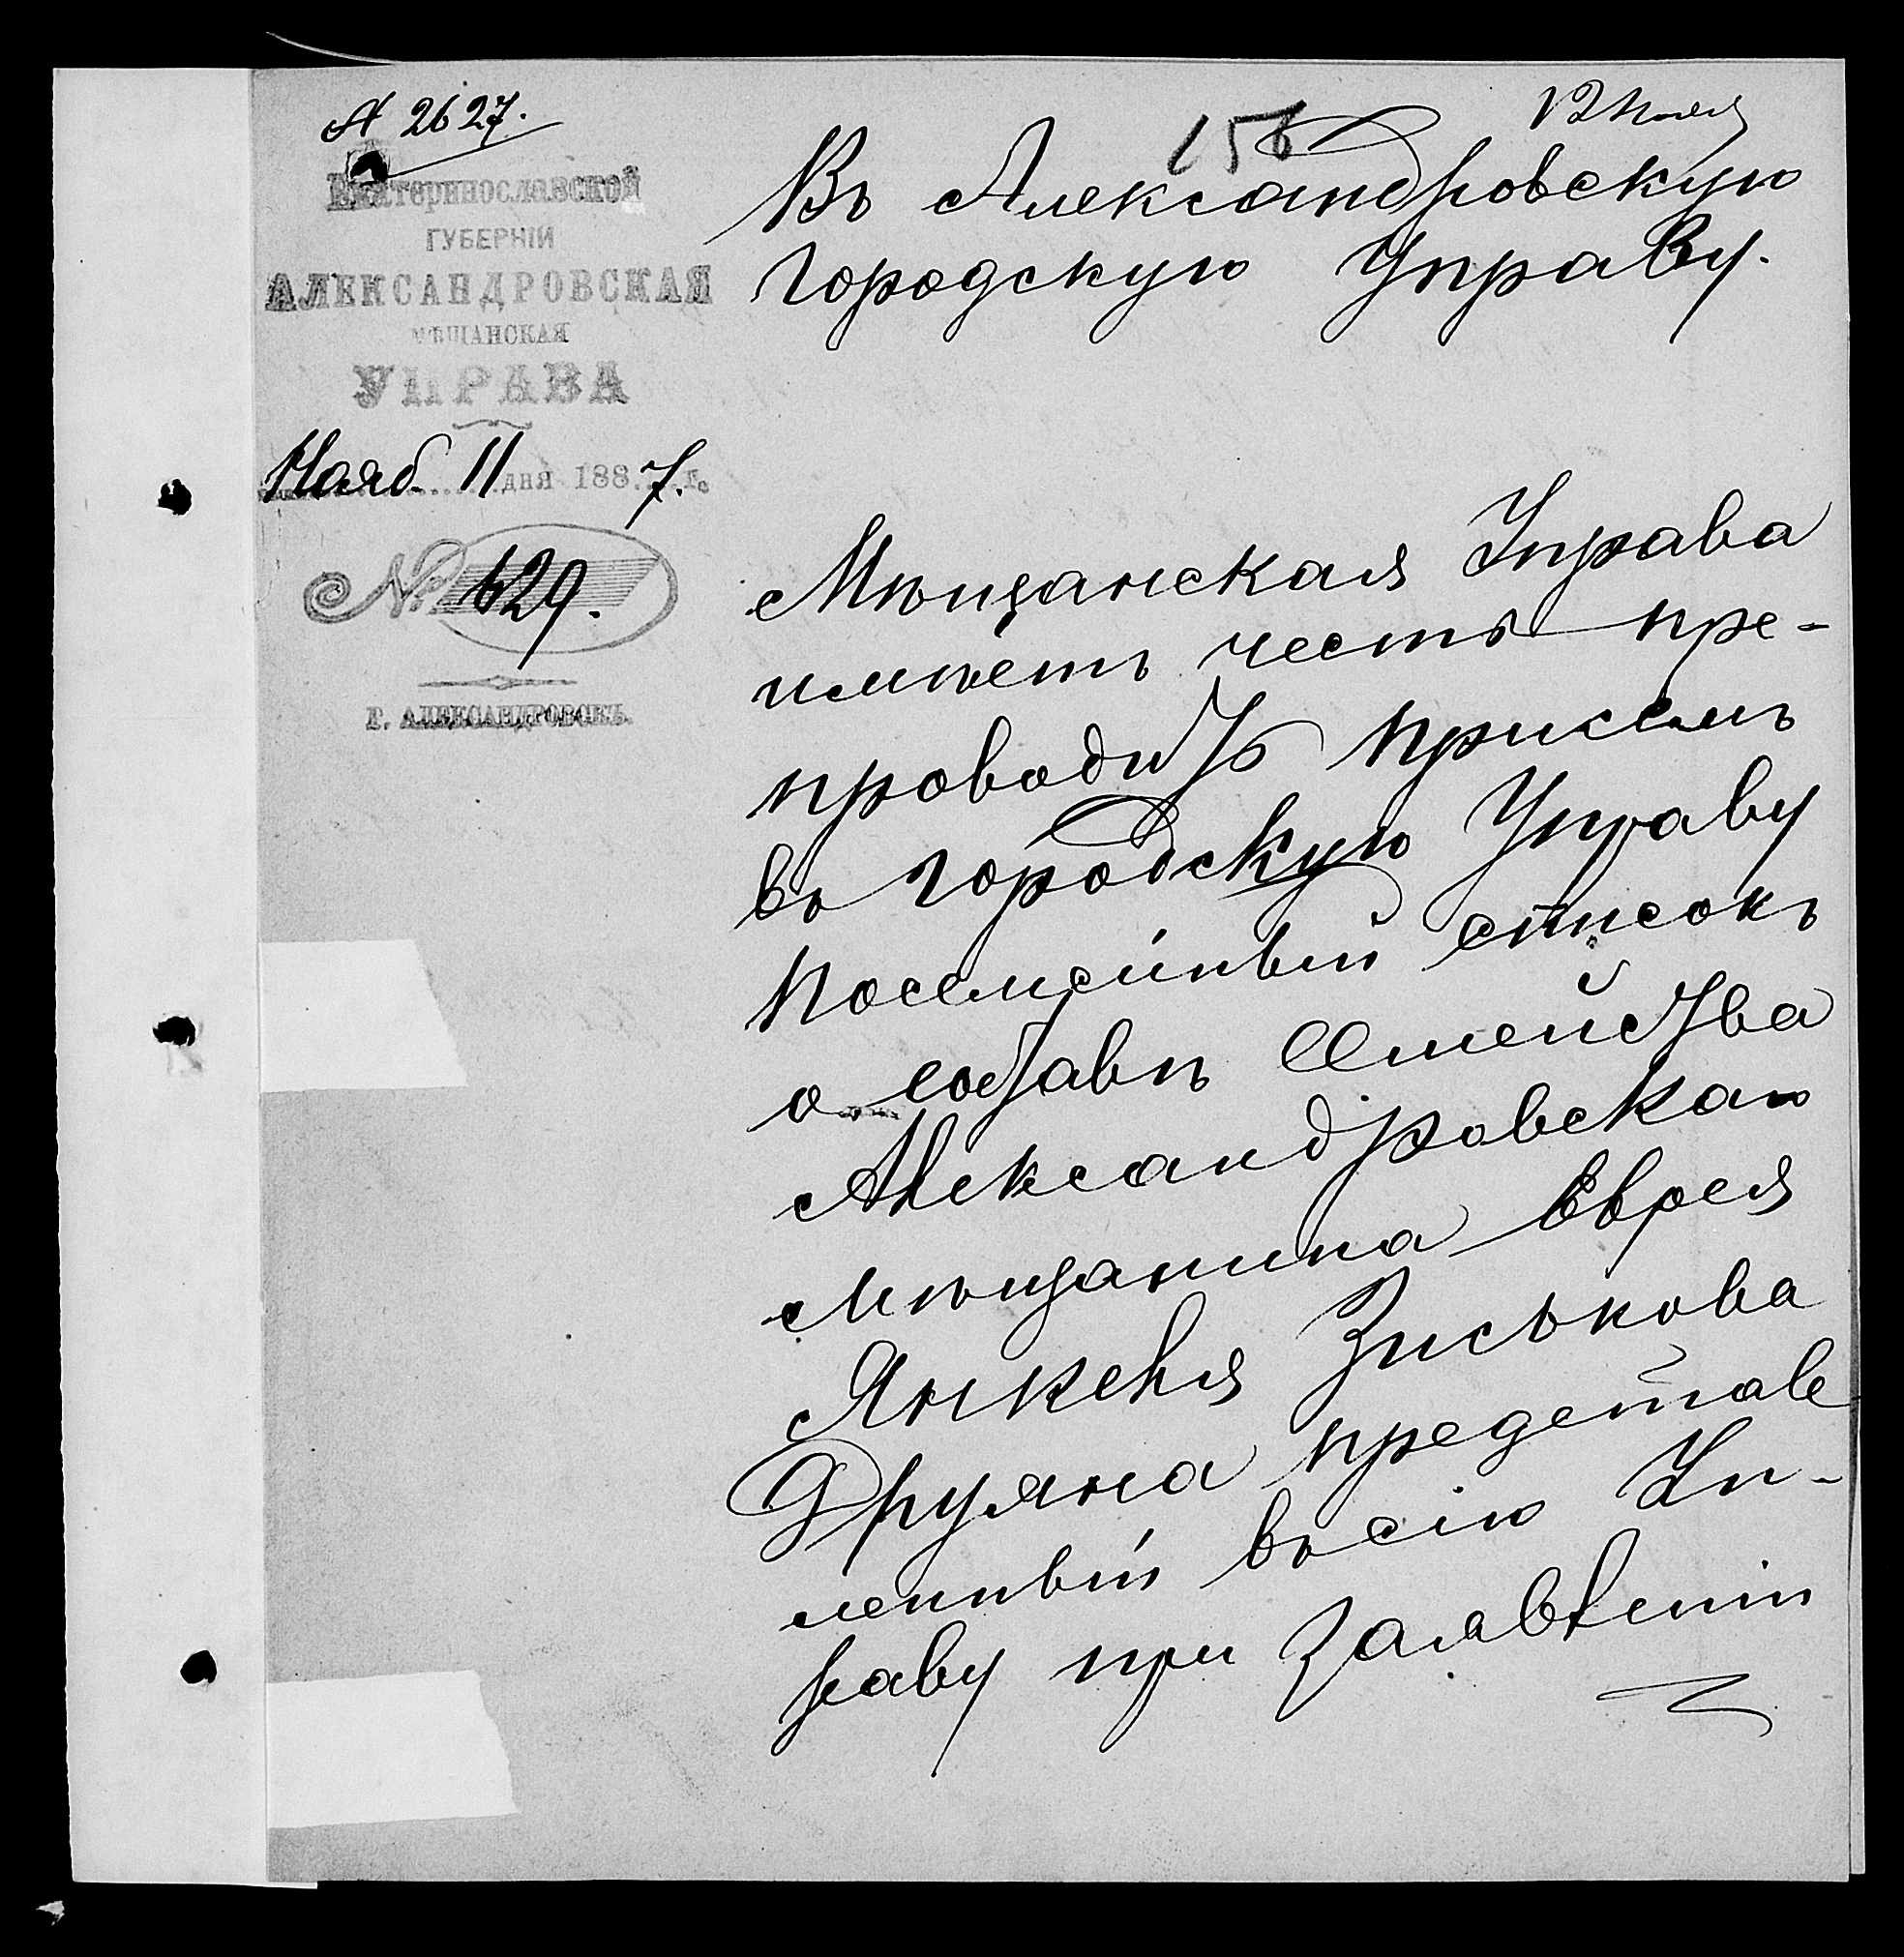 А 2627.
Екатеринославской
ГУБЕРНІИ
АЛЕКСАНДРОВСКАЯ
МѢЩАНСКАЯ
УПРАВА
Нояб. 11 дня 1887. г.
№ 629.
Г. АЛЕКСАНДРОВСКЪ.
156
12 Нояб
Въ Александровскую
Городскую Управу.
Мѣщанская Управа
имѣетъ честь пре-
проводить при семъ
въ Городскую Управу
посемейный списокъ
о составѣ Семейства
Александровскаго
мѣщанина Еврея
Янкеля Зиськова
Друяна представ
ленный въ сію Уп-
раву при заявленіи